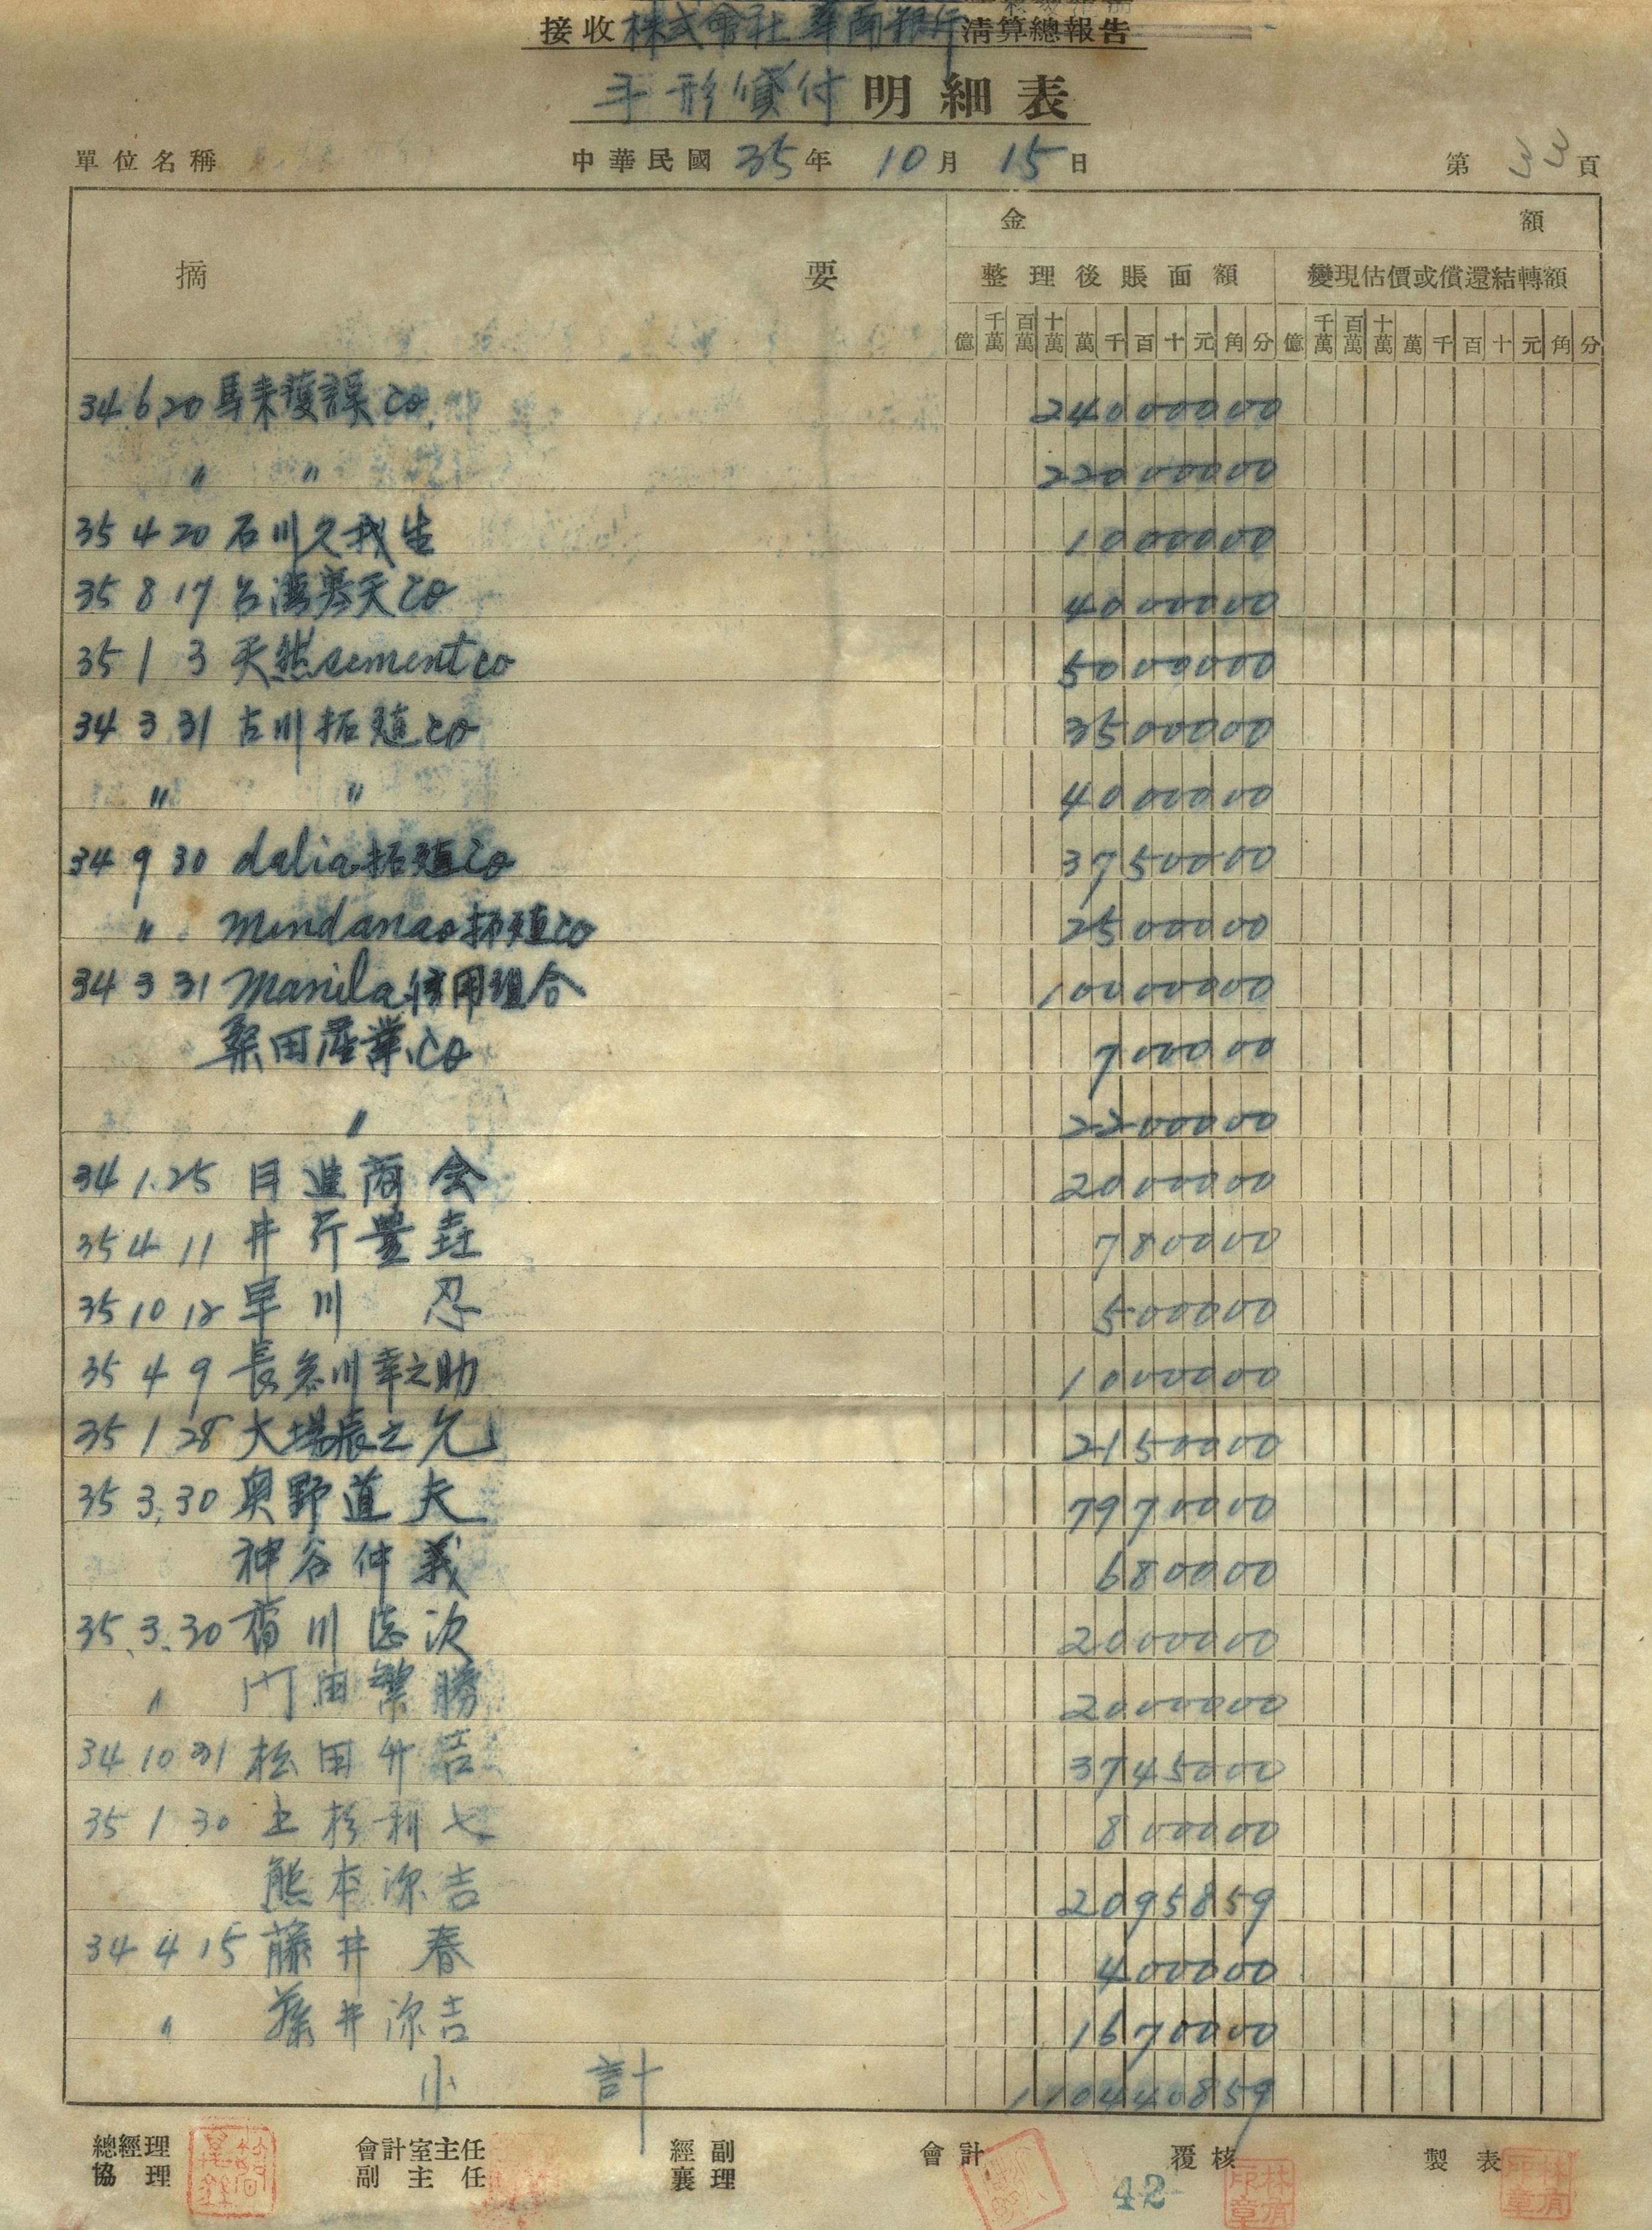 接收株式會社華南銀行清算總報告
手形貸付明細表
單位名稱 中華民國35年10月15日 第33頁
摘要 金額
整理後賬面額 變現估價或償還結轉額
億 千萬 百萬 十萬 萬 千 百 十 元 角 分 億 千萬 百萬 十萬 萬 千 百 十 元 角 分
34 6.20 馬来護謨Co. 24000000
〃 〃 22000000
35 4 20 石川久我生 1000000
35 8 17 台湾寒天Co 4000000
35 1 3 天然sement co 5000000
34 3 31 古川拓殖co 3500000
〃 〃 4000000
34 9 30 dalia拓殖Co 3750000
〃 Mindanao拓殖co 2500000
34 3 31 Manila信用組合 10000000
桑田産業Co 700000
〃 2200000
34 1.25 日進商会 2000000
35 4 11 井芹豊 780000
35 10 12 早川 忍 500000
35 4 9 長谷川幸之助 1000000
35 1 28 大場辰之允 2150000
35 3.30 奥野道夫 7970000
神谷仲義 680000
35.3.30 川 次 2000000
〃 門田繁勝 2000000
34 10 31 松田竹吉 3745000
35 1 30 上杉利七 800000
熊本源吉 2095859
34 4 15 藤井 春 400000
〃 藤井源吉 1670000
小計 110440859
總經理 會計室主任 經副 會計 覆核 製表
協理 副主任 襄理
42
林有印章 林有印章